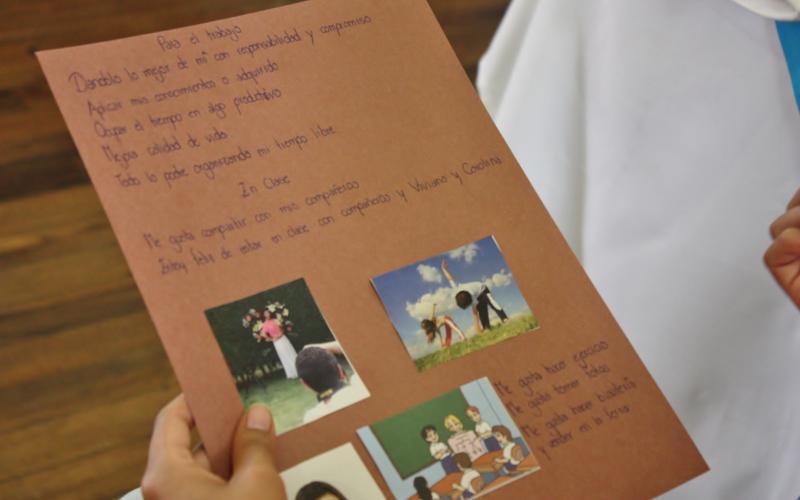 Para el trabajo
Dandolo lo mejor de mi con responsabilidad y compromiso
Aplicar mis conocimientos o adquirido
Ocupar el tiempo en algo productivo
Mejor calidad de vida
Todo lo podre organizando mi tiempo libre
En Clase
Me gusta compartir con mis compañeros
Estoy feliz de estar en clase con compañeros y Viviana y Carolina
Me gusta hacer ejercicio
Me gusta tomar fotos
Me gusta hacer bisuteria
y vender en la feria